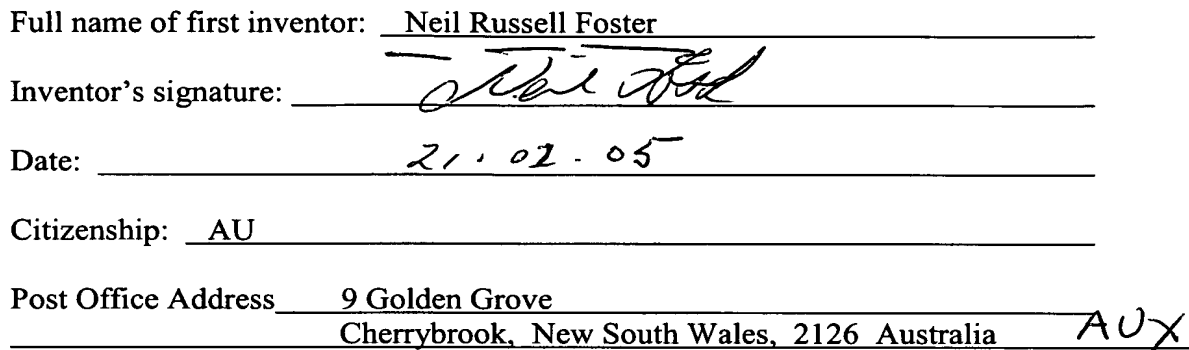 Full name of first inventor: Neil Russell Foster
Inventor's signature: Neil
Date: 21.02.05
Citizenship: AU
Post Office Address 9 Golden Grove
Cherrybrook, New South Wales, 2126 Australia AUX